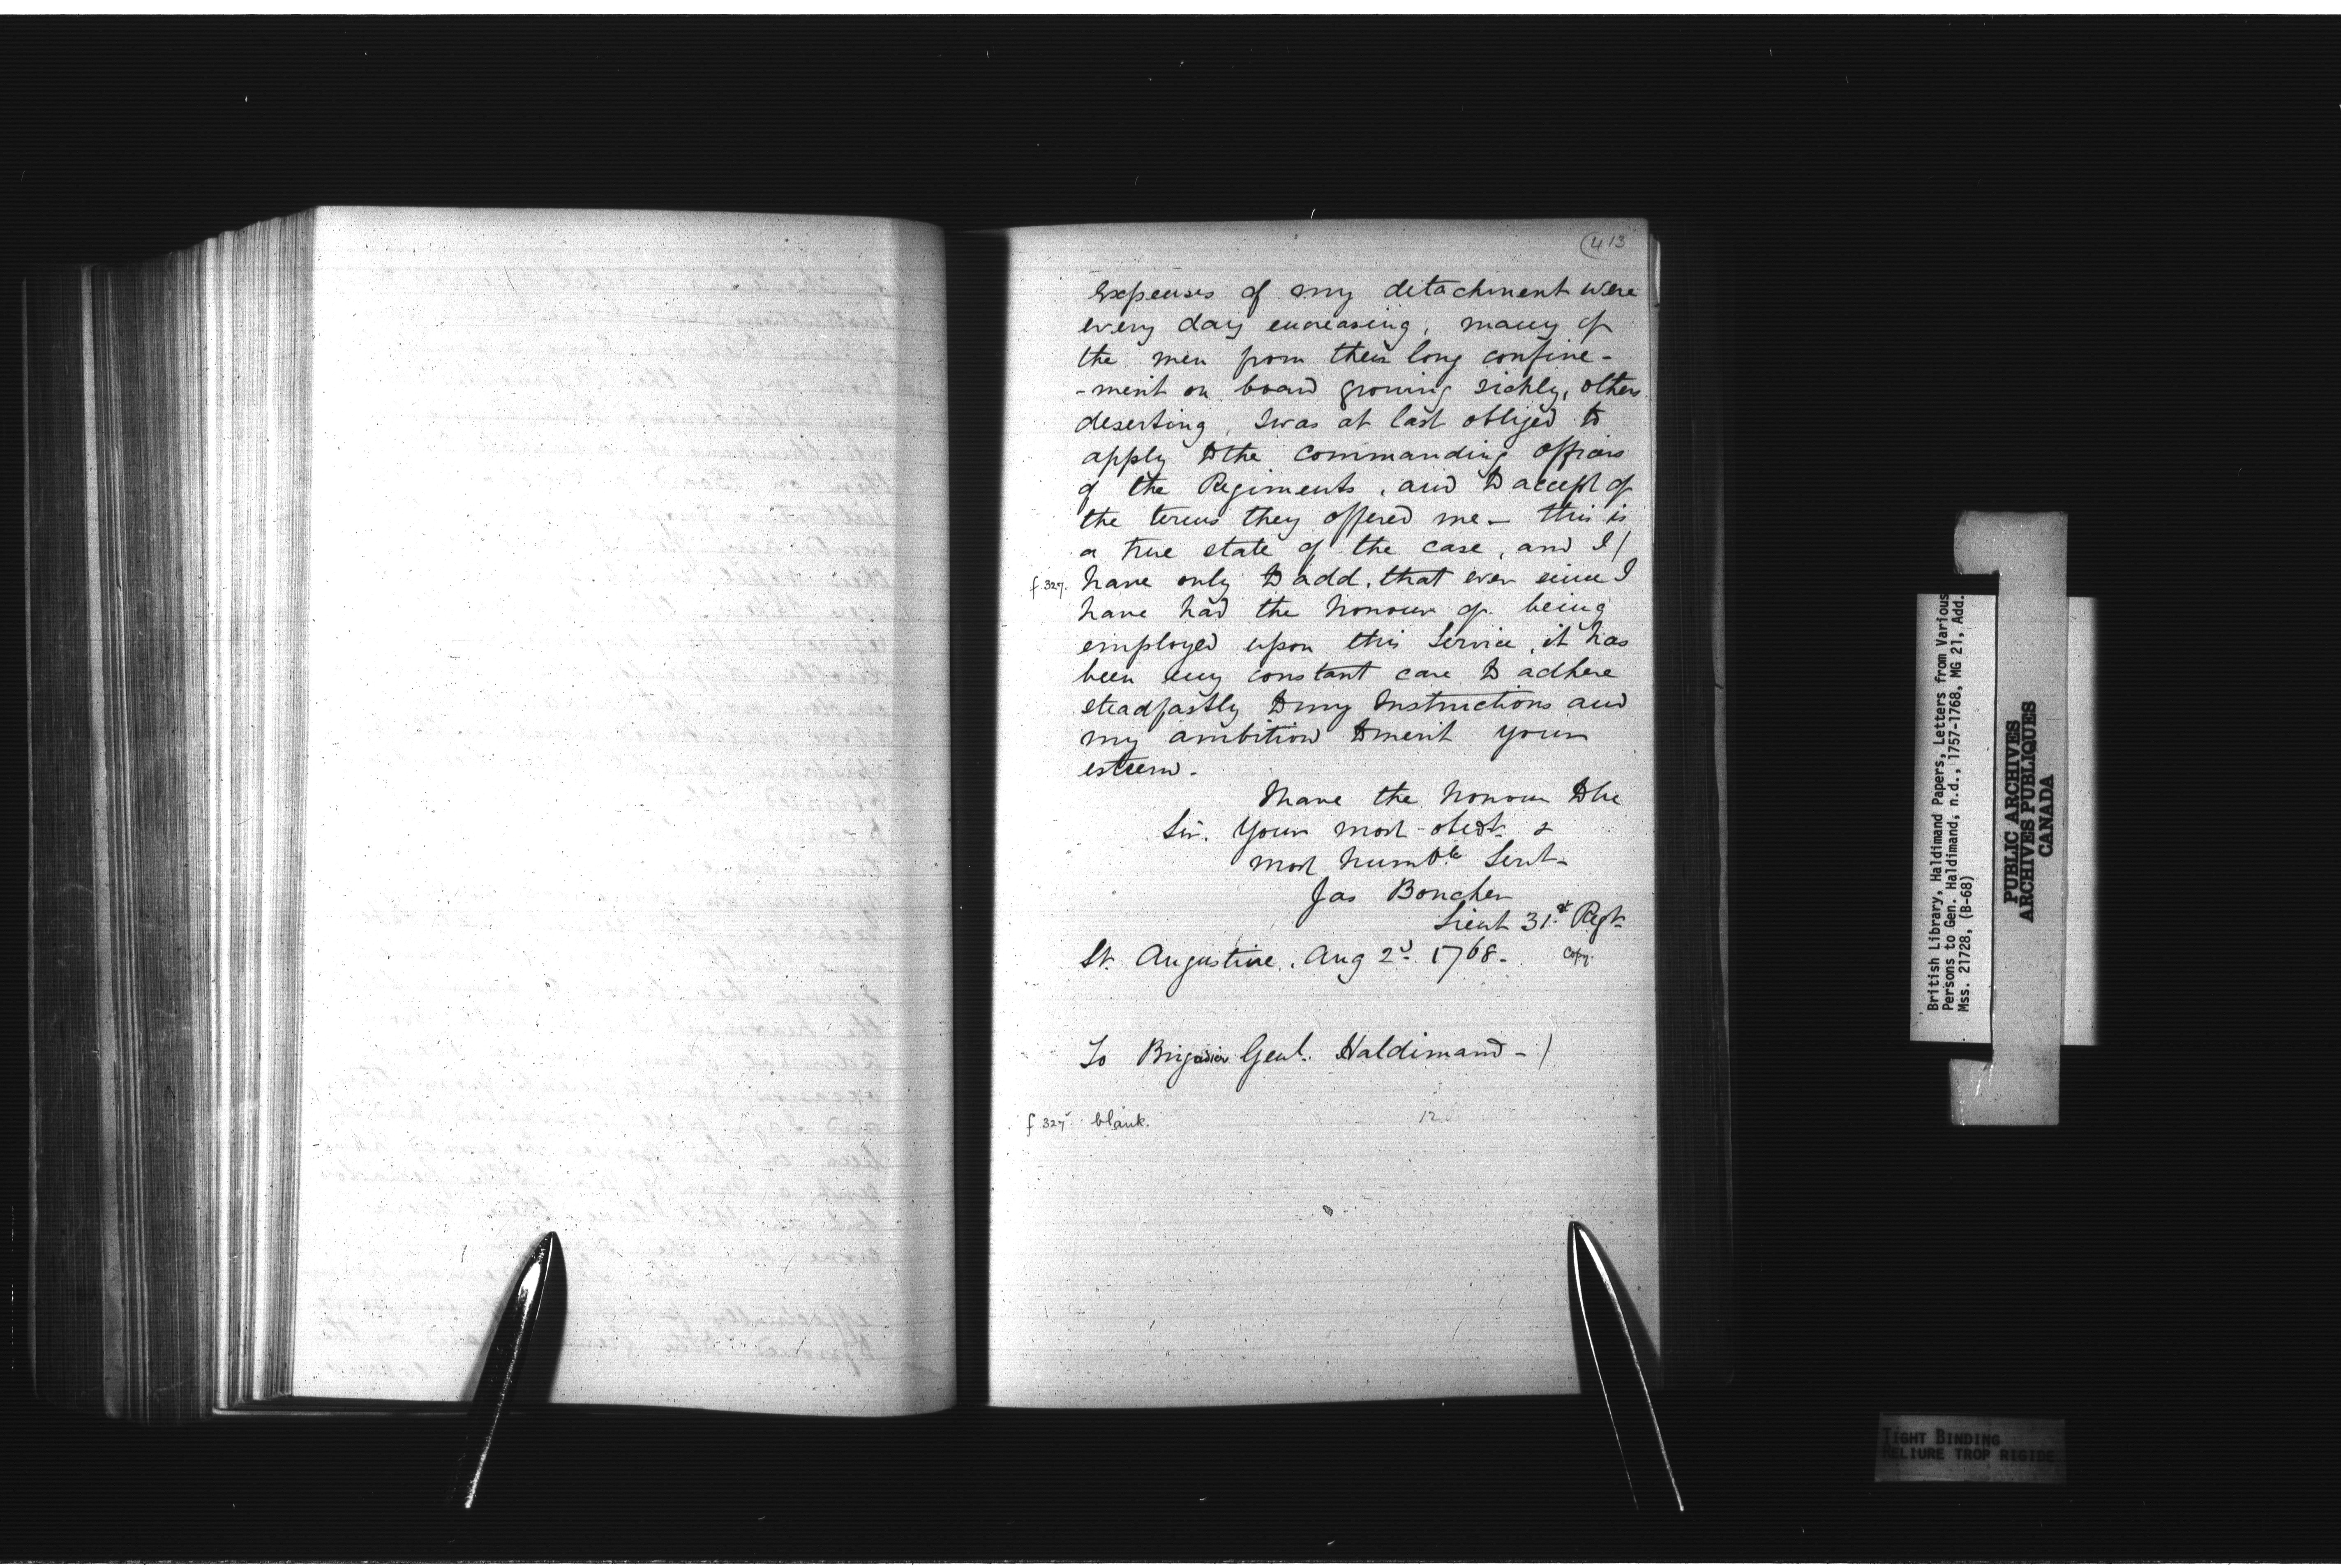 413
expenses of my detachment were
every day encreasing, many of
the men from their long confine-
-ment on board growing sickly, others
deserting, I was at last obliged to
apply to the Commanding Officers
of the Regiments, and to accept of
the terms they offered me - this is
a true state of the case, and I/
f 327. have only to add, that ever since I
have had the honour of being
employed upon this Service, it has
been my constant care to adhere
steadfastly to my Instructions and
my ambition to merit your
esteem.
I have the honour to be
Sir. Your most obedt. &
most humble Servt.
Jas Boucher
Lieut 31st Regt.
St. Augustine, Aug 2d 1768.
Copy.
To Brigadier Genl. Haldimand - /
f 327v blank.
British Library, Haldimand Papers, Letters from Various
Persons to Gen. Haldimand, n.d., 1757-1768, MG 21, Add.
Mss. 21728, (B-68)
PUBLIC ARCHIVES
ARCHIVES PUBLIQUES
CANADA
TIGHT BINDING
RELIURE TROP RIGIDE